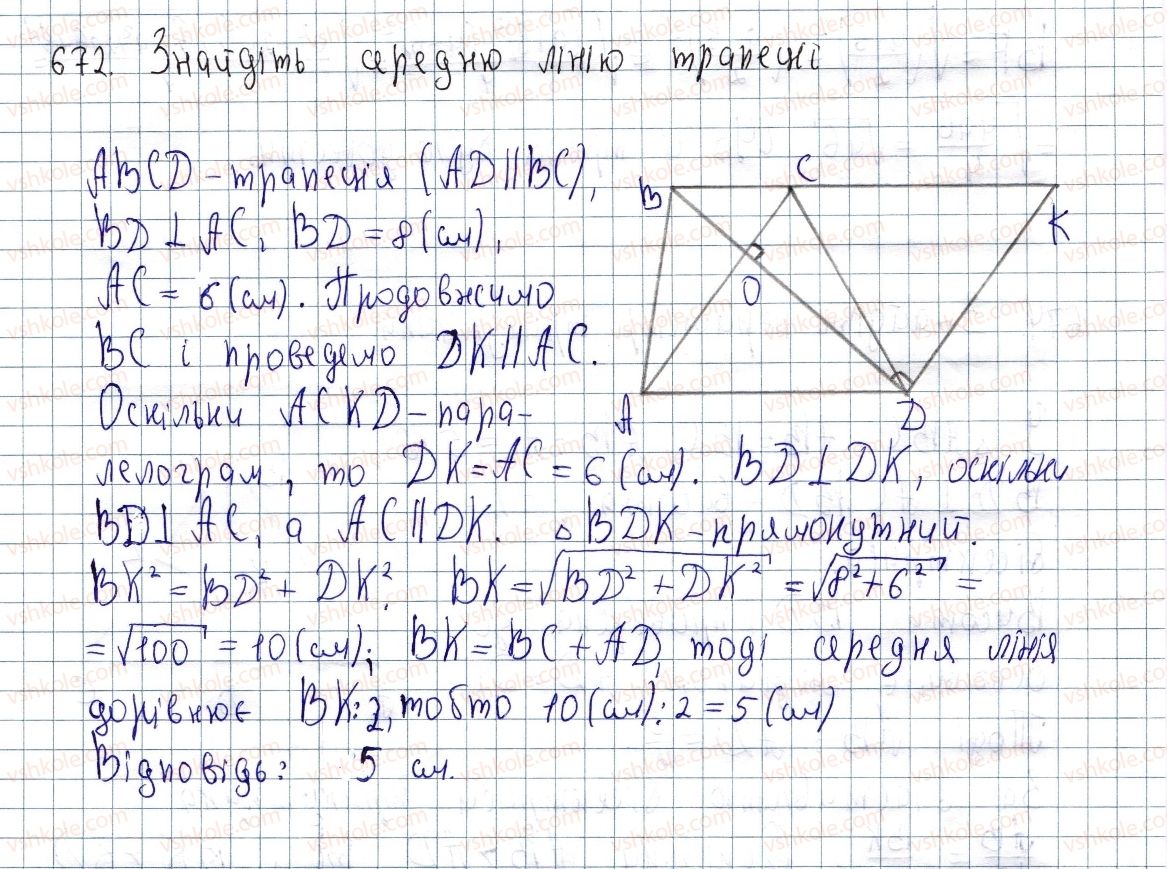 672. Знайдіть середню лінію трапеції
ABCD – трапеція (AD||BC),
BD⊥AC, BD = 8 (см),
AC = 6 (см). Продовжимо
BC і проведемо DK||AC.
Оскільки ACKD – пара-
лелограм, то DK = AC = 6 (см). BD⊥DK, оскільки
BD⊥AC, а AC||DK. △BDK – прямокутний.
BK² = BD² + DK²; BK = √BD² + DK² = √8² + 6² =
= √100 = 10 (см); BK = BC + AD, тоді середня лінія
дорівнює BK:2, тобто 10 (см):2 = 5 (см)
Відповідь: 5 см.
B
C
K
O
A
D
vshkole.com